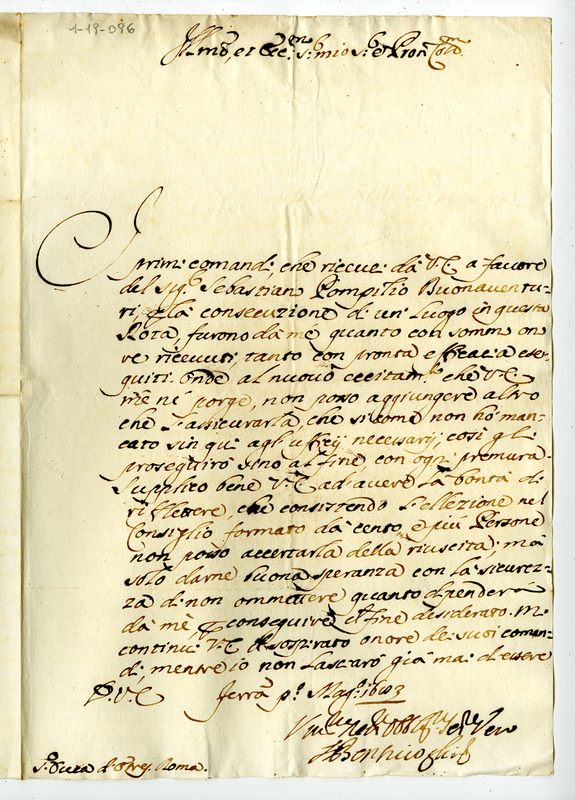 1-19-096
Ill.mo, et Ecc.mo S.r mio S.r et Pron Col.mo
I primi comandi, che riceuei da V.E. a fauore
del Sig.r Sebastian Pompilio Buonauentu-
ri p la consecuzione di un' Luogo in questa
Rota, furono da mè quanto con somm on
re riceuuti, tanto con pronta efficacia ese-
guiti. Onde al nuouo eccitam.to che V.E.
me ne porge, non posso aggiungere altro
che l'assicurarla, che si come non hò man-
cato sin qui agl' uffizij necessarij; così gli
proseguirò sino al fine, con ogni premura.
Supplico bene V.E. ad auere la bontà di
riflettere, che consistendo l'ellezione nel
Consiglio formato da cento, e più Persone
non posso accertarla della riuscita; mà
solo darne buona speranza con la sicurez-
za di non ommettere quanto dipenderà
da mè, p conseguire il fine desiderato. Mi
continui V.E. il sospirato onore de suoi coman-
di, mentre io non lascarò già mai di essere
D. V.E. Ferra p.o Mag.o 1693
Bentiuogli
S.r Duca d. Roma.